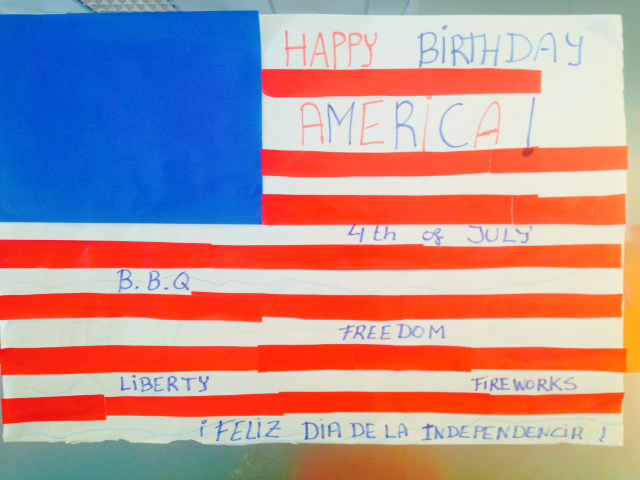 HAPPY BIRTHDAY
AMERICA!
4th of JULY
B.B.Q
FREEDOM
LIBERTY FIREWORKS
¡FELIZ DIA DE LA INDEPENDENCIA!